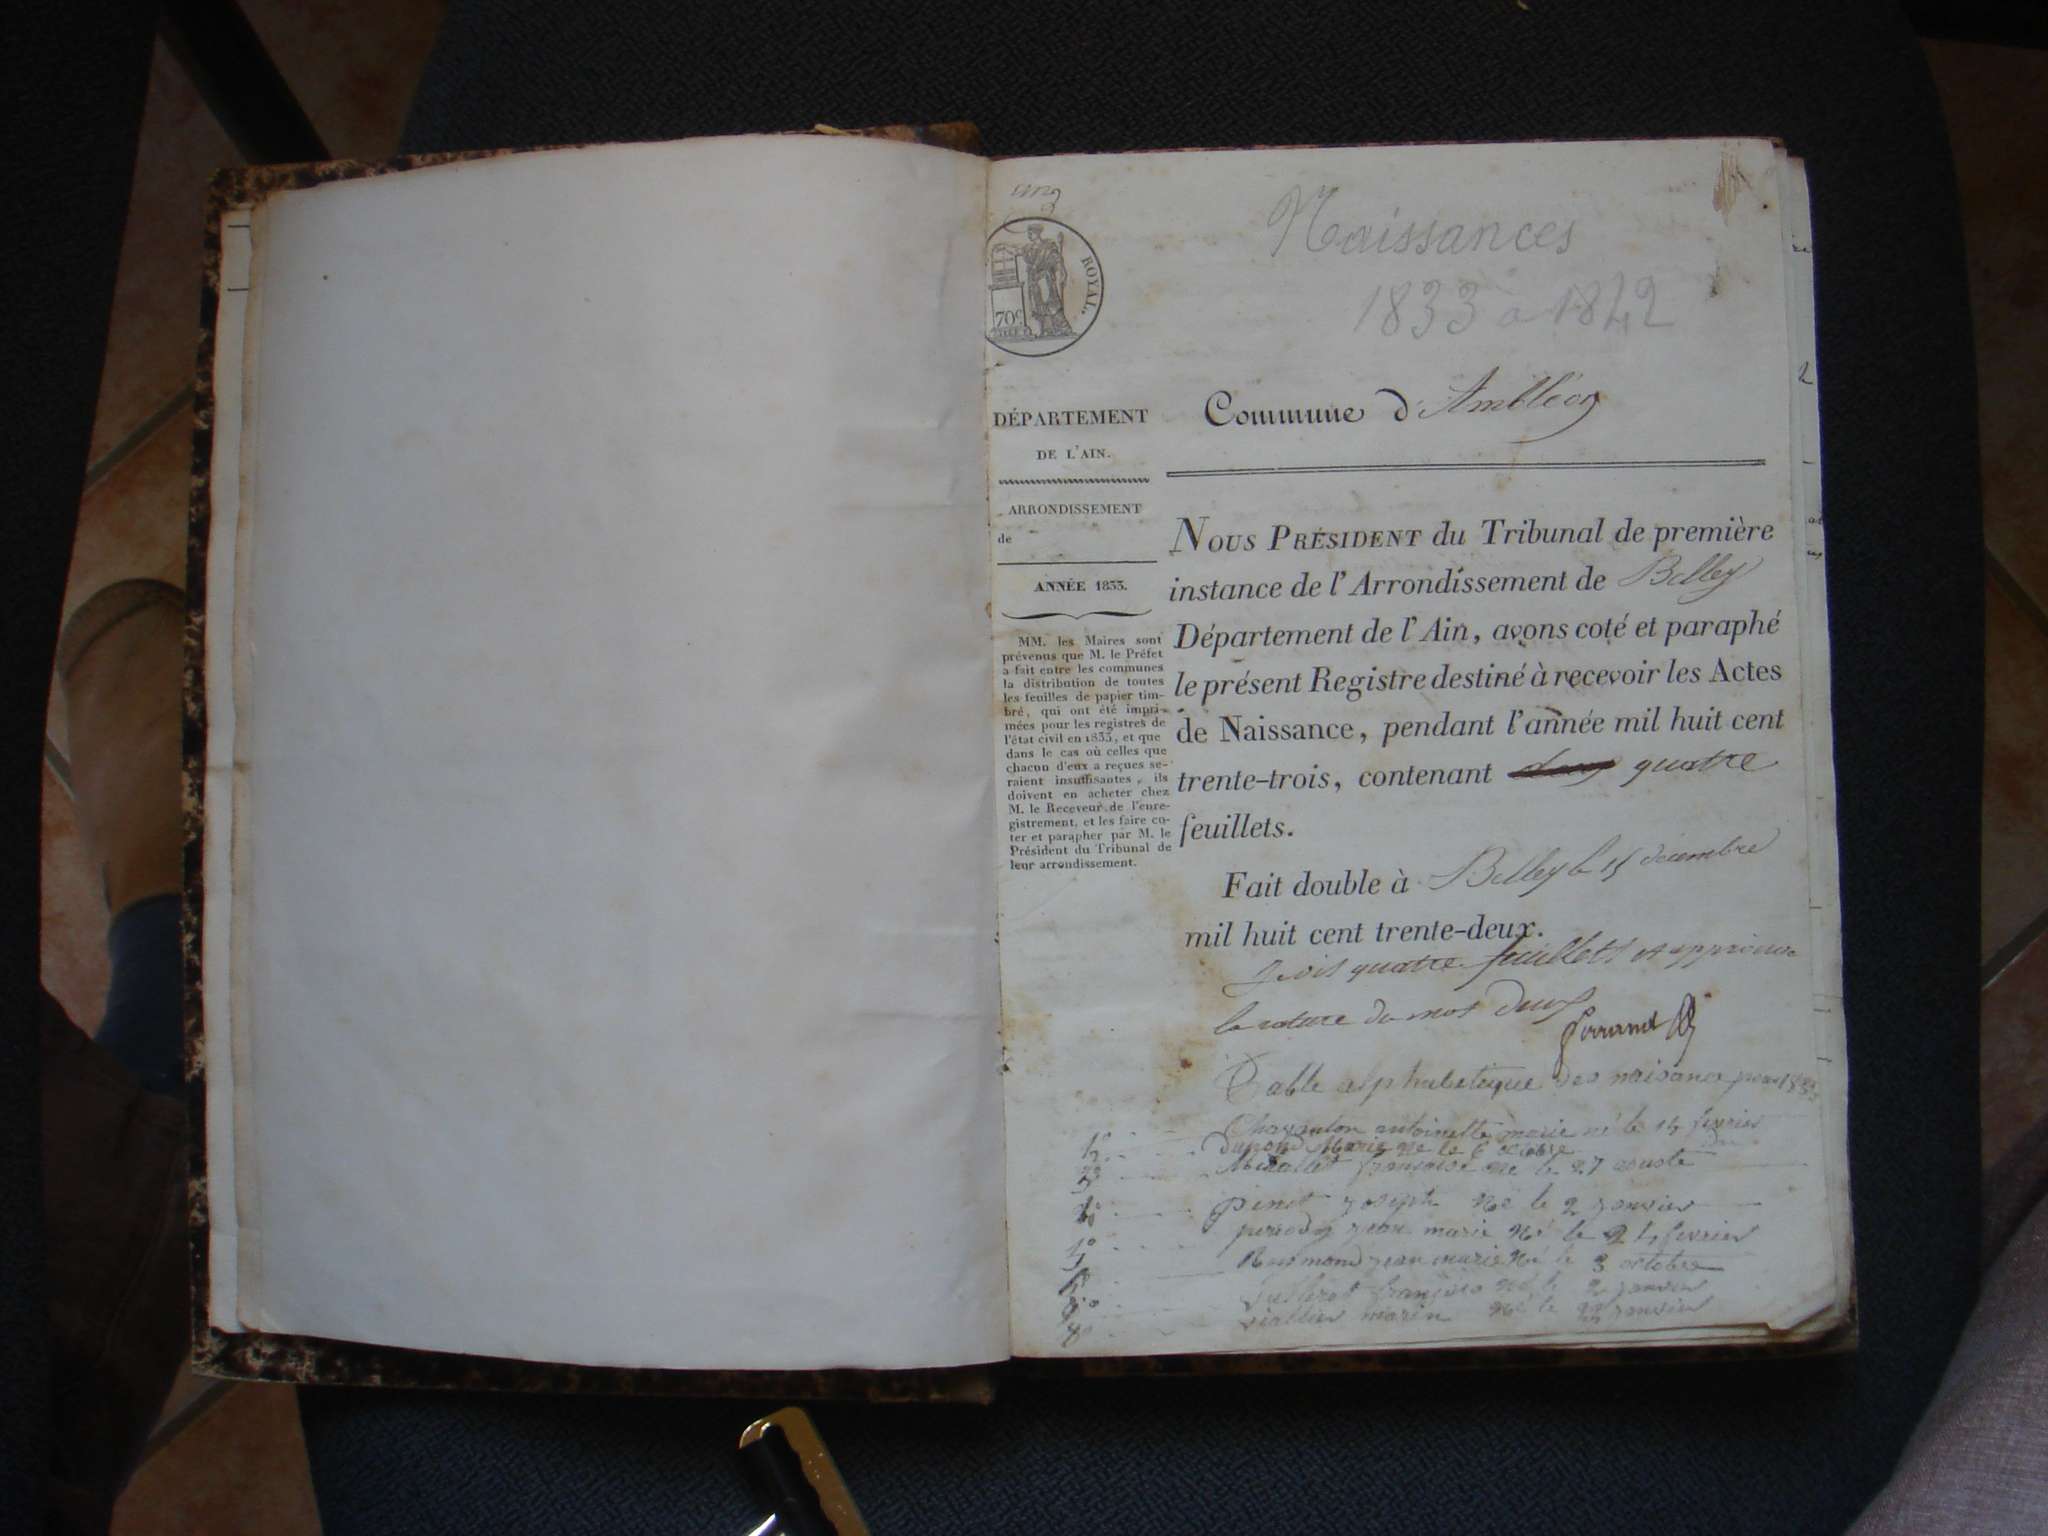 Naissances
1833 a 1842
ROYAL.
70c
Commune d'Ambléon
DÉPARTEMENT
DE L'AIN.
ARRONDISSEMENT
de
ANNÉE 1833.
MM. les Maires sont
prévenus que M. le Préfet
a fait entre les communes
la distribution de toutes
les feuilles de papier tim-
bré, qui ont été impri-
mées pour les registres de
l'état civil en 1833, et que
dans le cas où celles que
chacun d'eux a reçues se-
raient insuffisantes, ils
doivent en acheter chez
M. le Receveur de l'enre-
gistrement, et les faire co-
ter et parapher par M. le
Président du Tribunal de
leur arrondissement.
NOUS PRÉSIDENT du Tribunal de première
instance de l'Arrondissement de Belley
Département de l'Ain, avons coté et paraphé
le présent Registre destiné à recevoir les Actes
de Naissance, pendant l'année mil huit cent
trente-trois, contenant quatre
feuillets.
Fait double à Belley le 15 décembre
mil huit cent trente-deux.
quatre feuillets et approuve
la rature du mot deux
Table alphabetique des naisance pour 1833
antoinette marie né le 14 fevrier
Marie né le 6 octobre
françoise né le 27 aouste
pinet joseph né le 2 janvier
jean marie né le 24 fevrier
jean marie né le 3 octobre
né le 2 janvier
marin né le 22 janvier